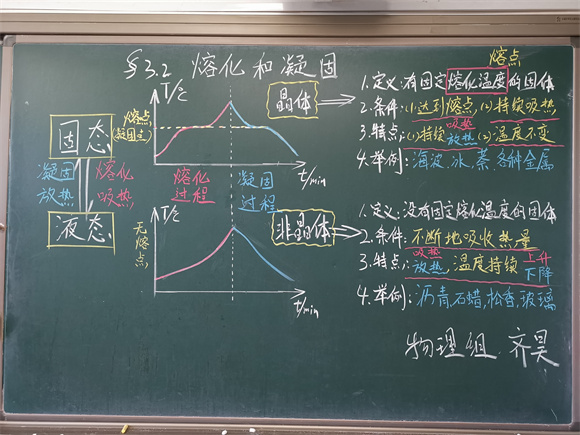 §3.2 熔化和凝固
熔点
T/℃
熔点
(凝固点)
t/min
晶体
1.定义:有固定熔化温度的固体
2.条件:(1)达到熔点,(2)持续吸热
吸热
3.特点:(1)持续放热(2)温度不变
4.举例:海波,冰,萘,各种金属
固态
凝固 熔化
放热 吸热
液态
熔化 凝固
过程 过程
T/℃
无熔点
t/min
非晶体
1.定义:没有固定熔化温度的固体
2.条件:不断地吸收热量
吸热 上升
3.特点:放热,温度持续下降
4.举例:沥青,石蜡,松香,玻璃
物理组 齐昊